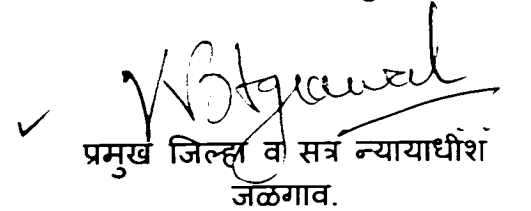 प्रमुख जिल्हा व सत्र न्यायाधीश
जळगाव.